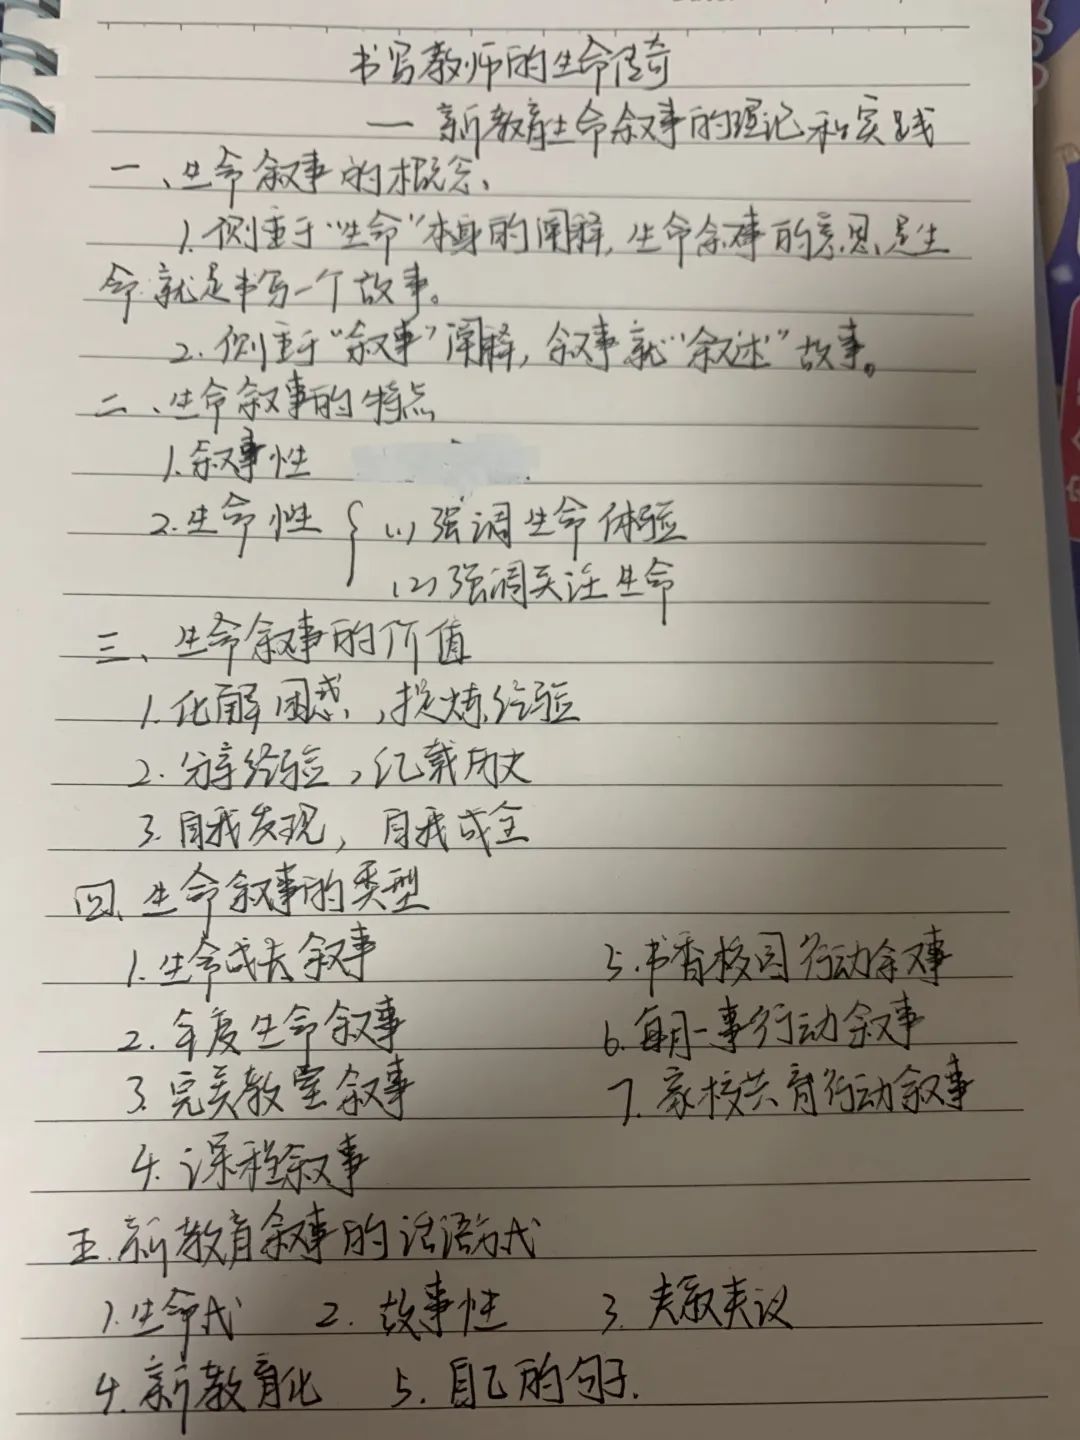 书写教师的生命传奇
— 新教育生命叙事的理记和实践
一、生命叙事的概念、
1. 侧重于“生命”本身的阐释, 生命叙事的意思是生
命就是书写一个故事。
2. 侧重于“叙事”阐释, 叙事就“叙述”故事。
二、生命叙事的特点
1. 叙事性
2. 生命性 { (1) 强调生命体验
(2) 强调关注生命
三、生命叙事的价值
1. 化解困惑, 提炼经验
2. 分享经验, 记载历史
3. 自我发现, 自我成全
四、生命叙事的类型
1. 生命成长叙事
2. 年度生命叙事
3. 完美教室叙事
4. 课程叙事
5. 书香校园行动叙事
6. 每月一事行动叙事
7. 家校共育行动叙事
五. 新教育叙事的话语方式
1. 生命式 2. 故事性 3. 夹叙夹议
4. 新教育化 5. 自己的句子.